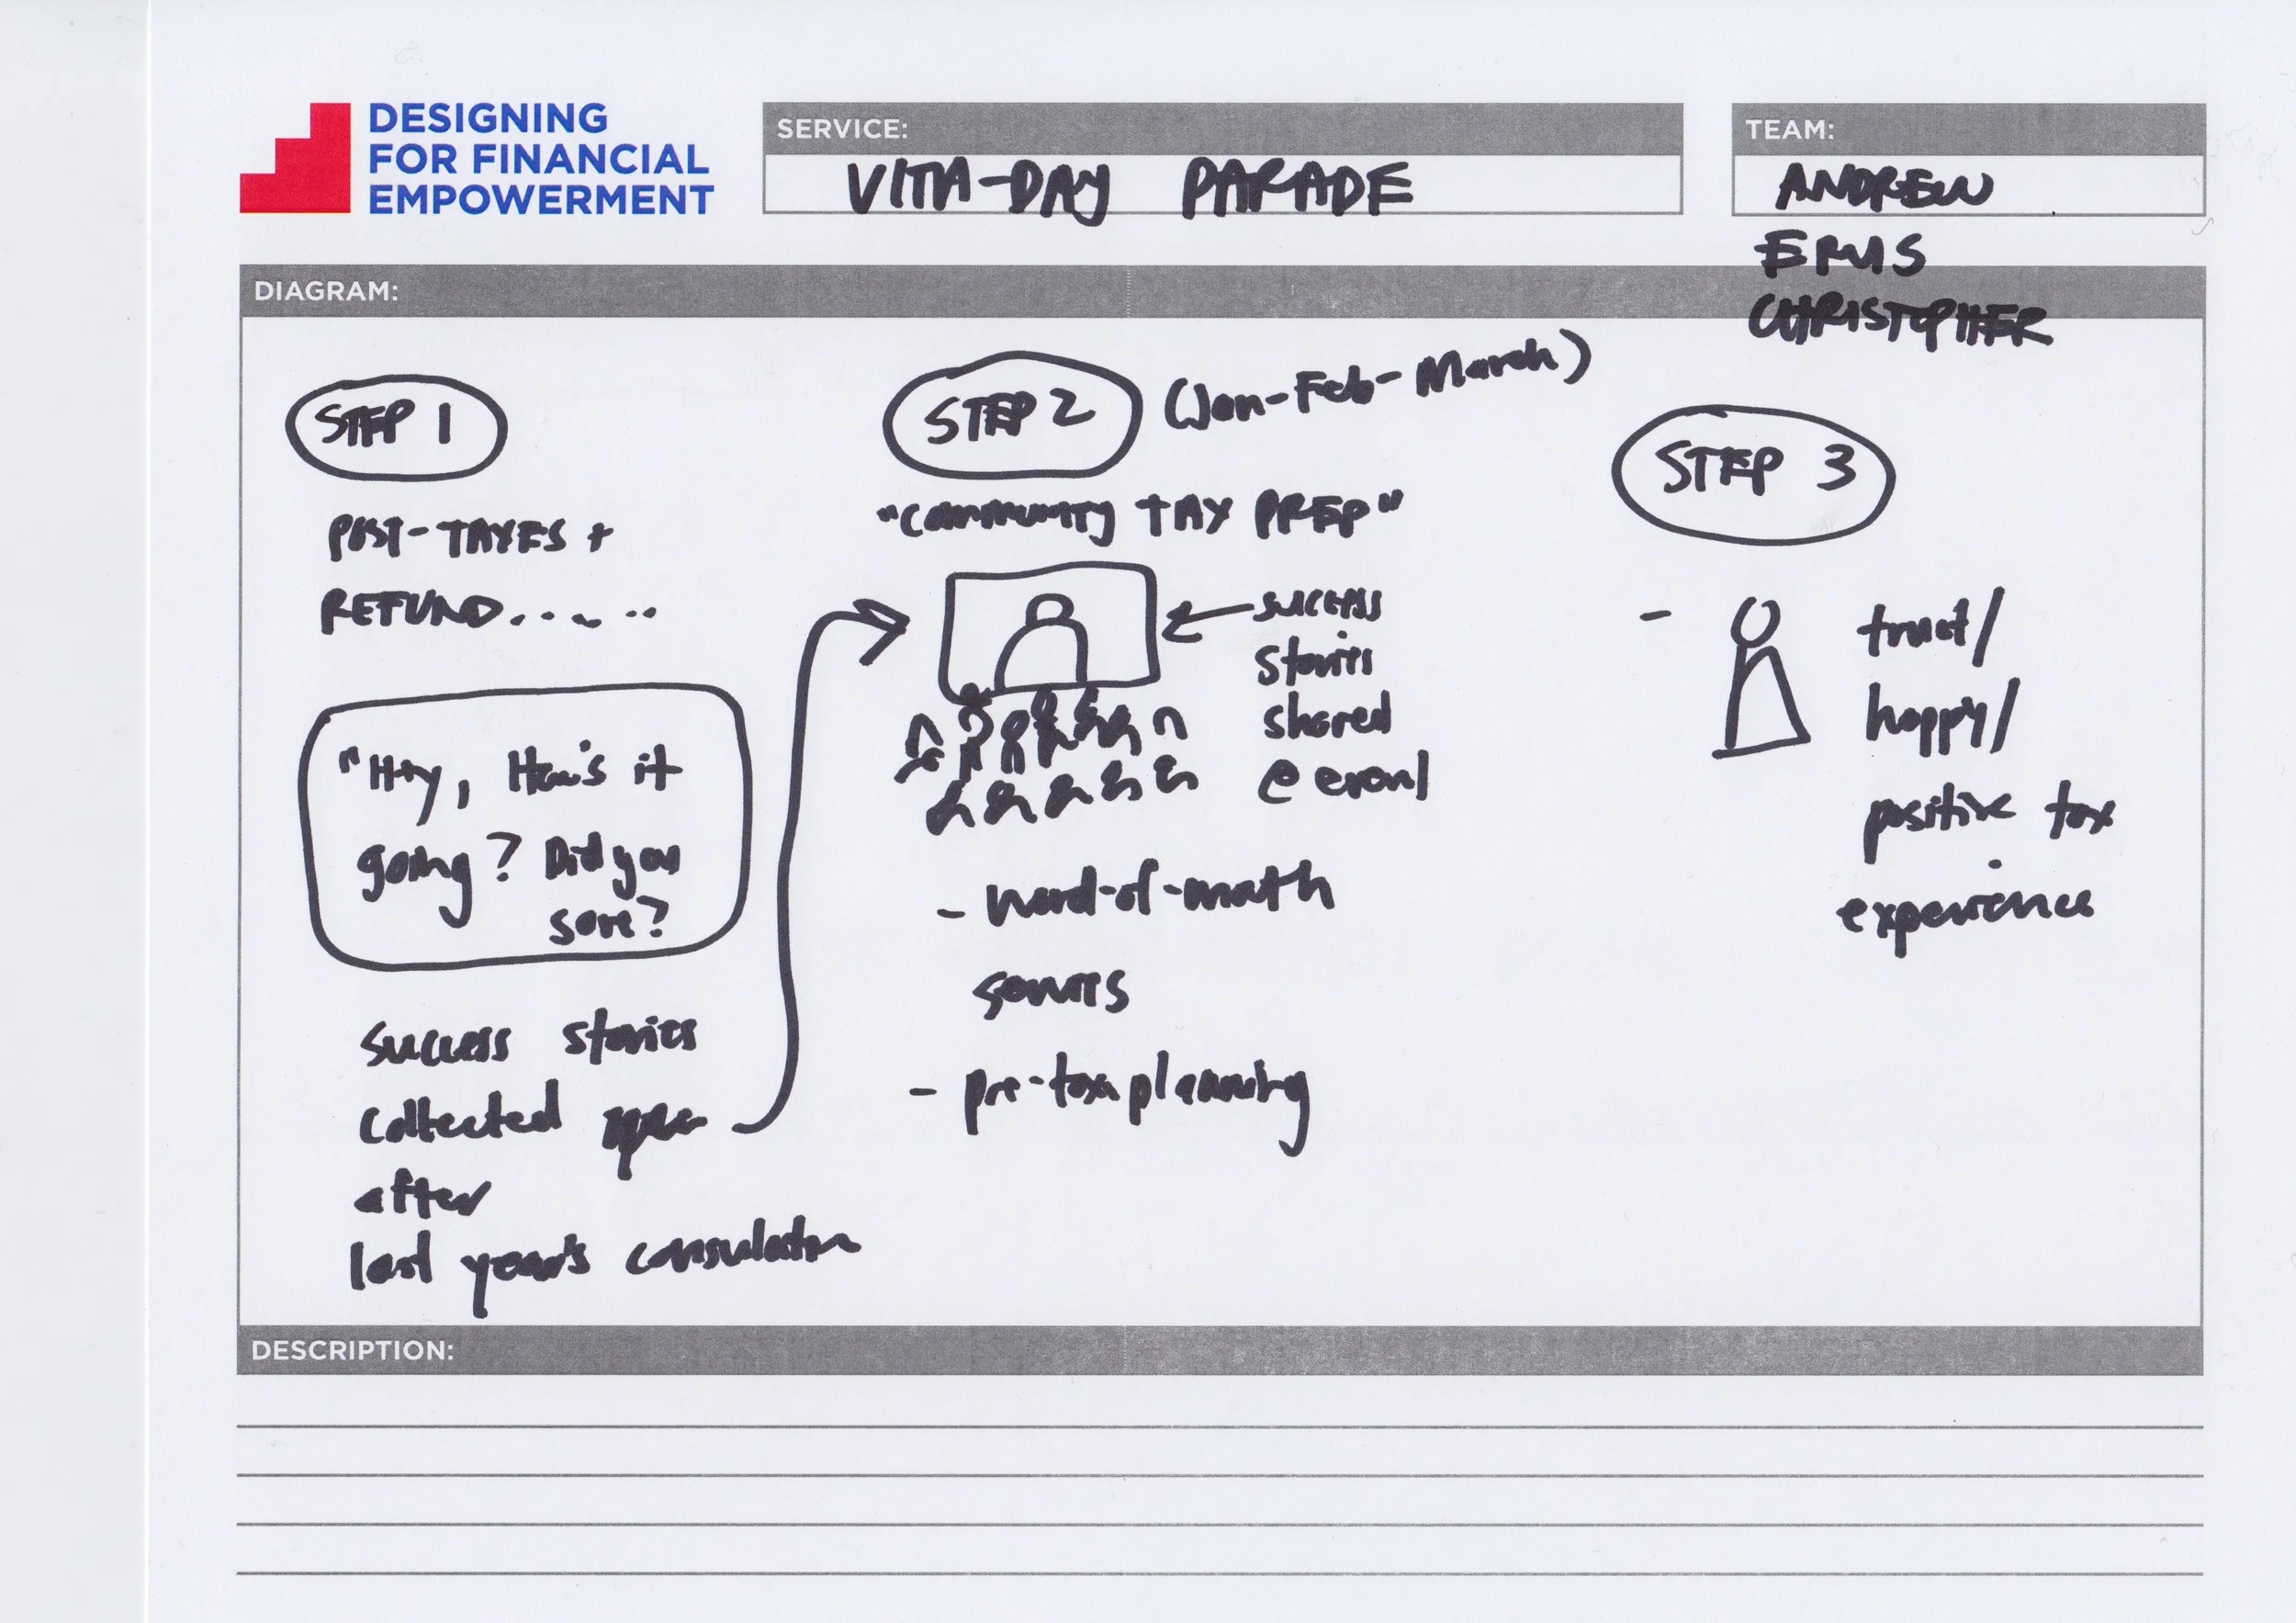 DESIGNING
FOR FINANCIAL
EMPOWERMENT
SERVICE:
VITA-DAY PARADE
TEAM:
ANDREW
CHRISTOPHER
DIAGRAM:
STEP 1
POST-TAXES +
REFUND......
"Hey, How's it
going? Did you
save?
success stories
collected
after
last year's consultation
STEP 2 (Jan-Feb-March)
"COMMUNITY TAX PREP"
success
stories
shared
@ event
- word-of-mouth
- pre-tax planning
STEP 3
- trust/
happy/
positive tax
experience
DESCRIPTION: